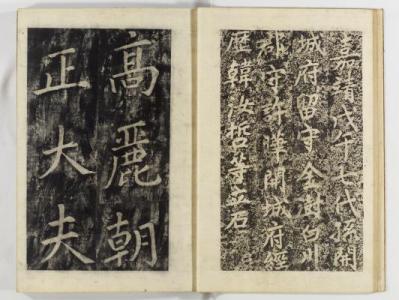 嘉靖戊午七代孫開
城府留守金白川
郡守許曄開城府經
歷韓哲等石
高麗朝
正大夫